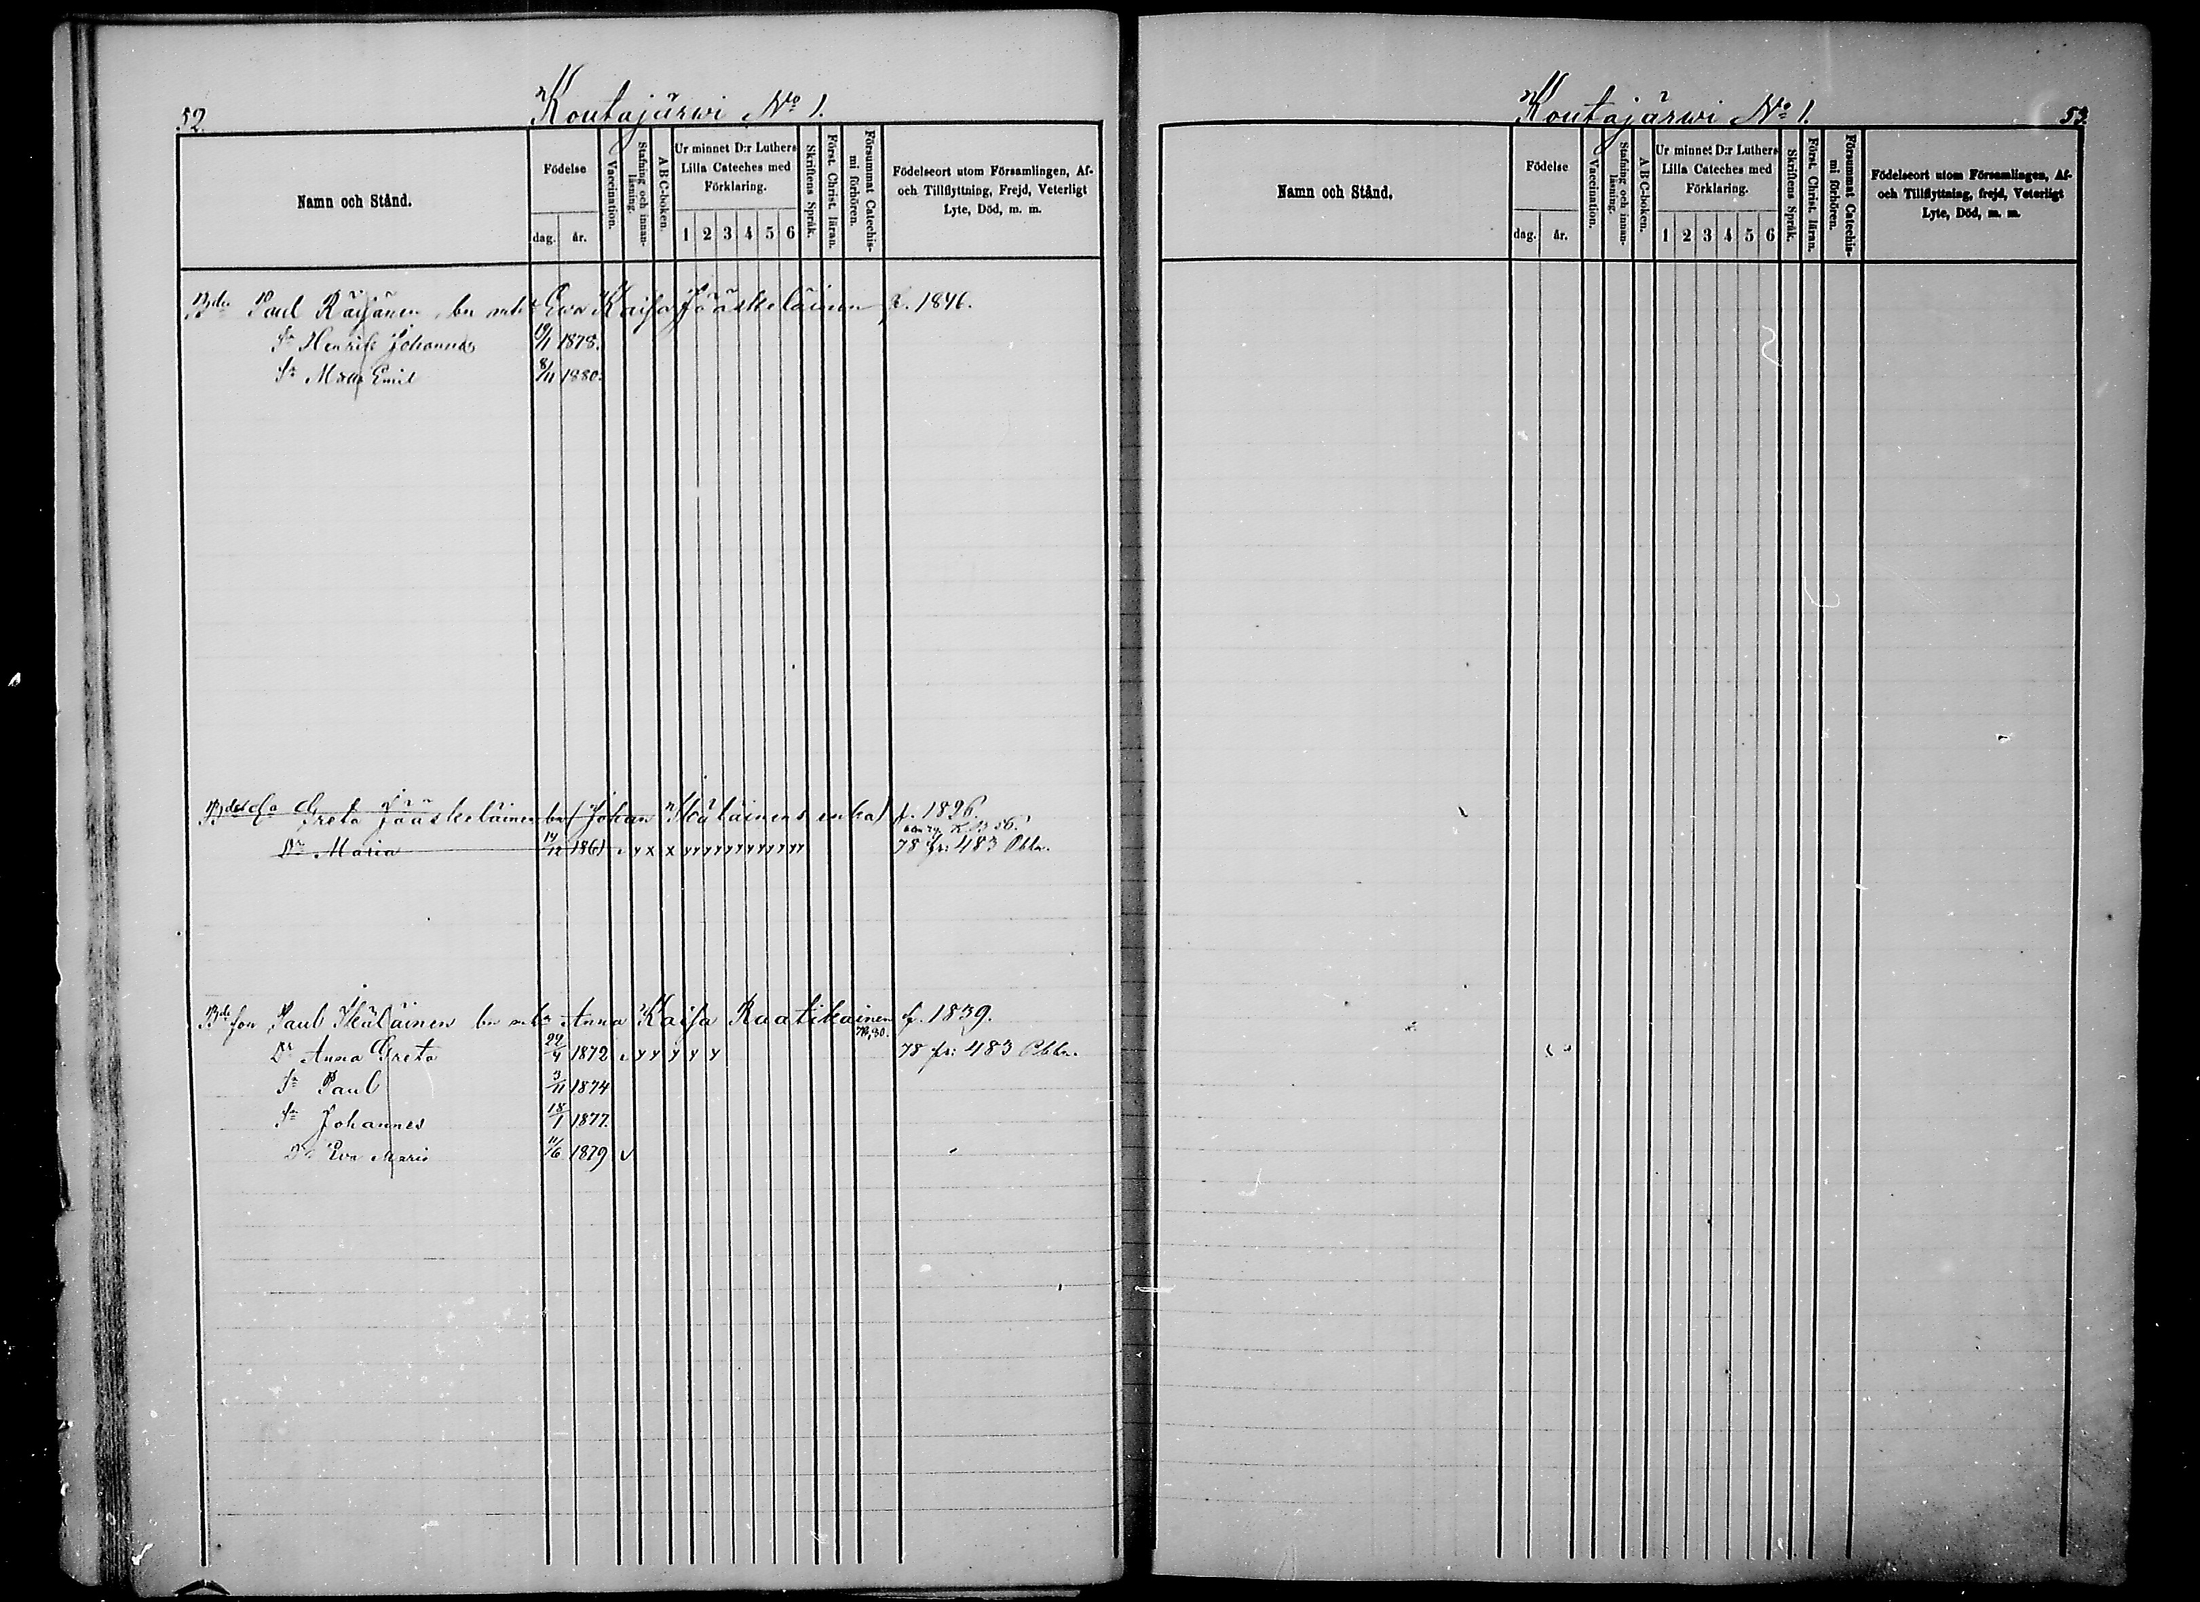 52.
Koutajärwi No 1.
Namn och Stånd.
Födelse
dag.
år.
Vaccination.
Stafning och innanläsning.
A B C-boken.
Ur minnet D:r Luthers
Lilla Cateches med
Förklaring.
1 2 3 4 5 6
Skriftens Språk.
Först. Christ. läran.
Försummat Catechismi förhören.
Födelseort utom Församlingen, Af-
och Tillflyttning, Frejd, Veterligt
Lyte, Död, m. m.
Paul Räisänen Eva Kaisa Jääskeläinen f. 1846.
Sn Henrik Johannes 19/1 1878.
Sn Emil 8/11 1880.
Greta Jääskeläinen (Johan enka) f. 1826.
Dr Maria 14/12 1861 78 fr: 483
Paul Anna Kaisa Raatikainen f. 1839.
Dr Anna Greta 22/4 1872 y y y y y 78 fr: 483
Sn Paul 3/11 1874
Sn Johannes 18/1 1877.
Dr Eva Maria 11/6 1879 v
Koutajärwi No 1.
53.
Namn och Stånd.
Födelse
dag.
år.
Vaccination.
Stafning och innanläsning.
A B C-boken.
Ur minnet D:r Luthers
Lilla Cateches med
Förklaring.
1 2 3 4 5 6
Skriftens Språk.
Först. Christ. läran.
Försummat Catechismi förhören.
Födelseort utom Församlingen, Af-
och Tillflyttning, frejd, Veterligt
Lyte, Död, m. m.